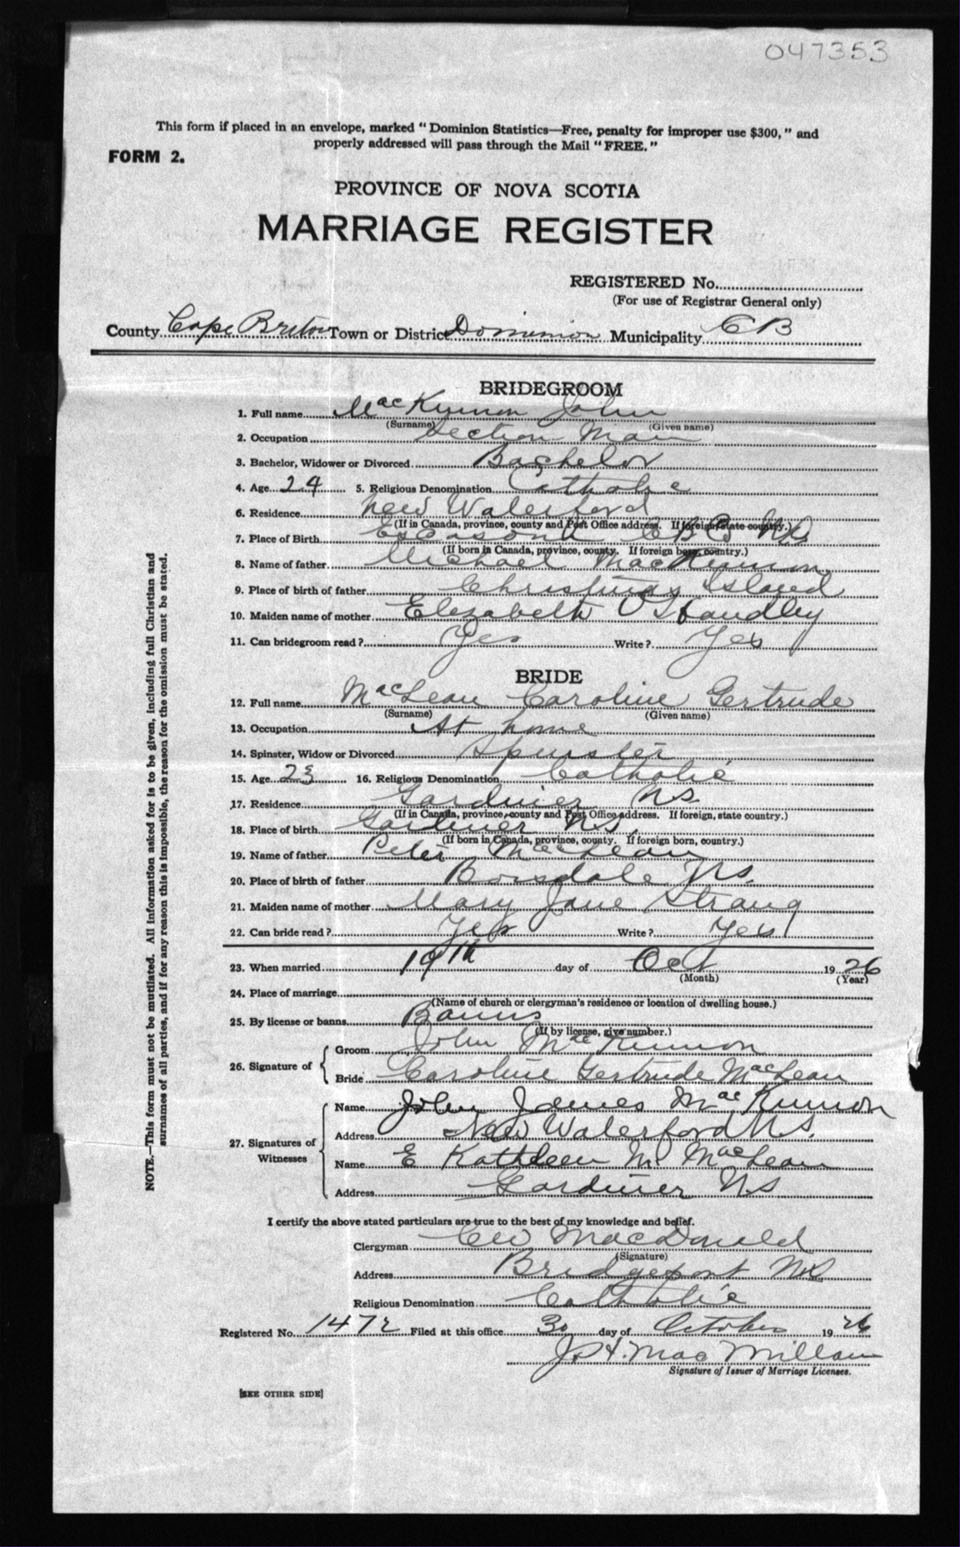 047353
This form if placed in an envelope, marked "Dominion Statistics—Free, penalty for improper use $300," and
properly addressed will pass through the Mail "FREE."
FORM 2.
PROVINCE OF NOVA SCOTIA
MARRIAGE REGISTER
REGISTERED No.
(For use of Registrar General only)
County Cape Breton Town or District Dominion Municipality C B
BRIDEGROOM
1. Full name MacKinnon John
(Surname) (Given name)
2. Occupation Section Man
3. Bachelor, Widower or Divorced Bachelor
4. Age 24 5. Religious Denomination Catholic
6. Residence New Waterford
(If in Canada, province, county and Post Office address. If foreign state country.)
7. Place of Birth Escasoni C B N S
(If born in Canada, province, county. If foreign born, country.)
8. Name of father Michael MacKinnon
9. Place of birth of father Christmas Island
10. Maiden name of mother Elizabeth O'Handley
11. Can bridegroom read? Yes Write? Yes
BRIDE
12. Full name MacLean Caroline Gertrude
(Surname) (Given name)
13. Occupation At home
14. Spinster, Widow or Divorced Spinster
15. Age 23 16. Religious Denomination Catholic
17. Residence Gardiner N S
(If in Canada, province, county and Post Office address. If foreign, state country.)
18. Place of birth Gardiner N S
(If born in Canada, province, county. If foreign born, country.)
19. Name of father Peter MacLean
20. Place of birth of father Boisdale N S.
21. Maiden name of mother Mary Jane Strang
22. Can bride read? Yes Write? Yes
23. When married 19th day of Oct 1926
(Month) (Year)
24. Place of marriage
(Name of church or clergyman's residence or location of dwelling house.)
25. By license or banns Banns
(If by license, give number.)
26. Signature of
Groom John MacKinnon
Bride Caroline Gertrude MacLean
27. Signatures of Witnesses
Name John James MacKinnon
Address New Waterford N S.
Name E Kathleen M MacLean
Address Gardiner N S
I certify the above stated particulars are true to the best of my knowledge and belief.
Clergyman MacDonald
(Signature)
Address Bridgeport N S
Religious Denomination Catholic
Registered No. 1472 Filed at this office 30 day of October 1926
J. H. MacMillan
Signature of Issuer of Marriage Licenses.
[SEE OTHER SIDE]
NOTE.—This form must not be mutilated. All information asked for is to be given, including full Christian and
surnames of all parties, and if for any reason this is impossible, the reason for the omission must be stated.